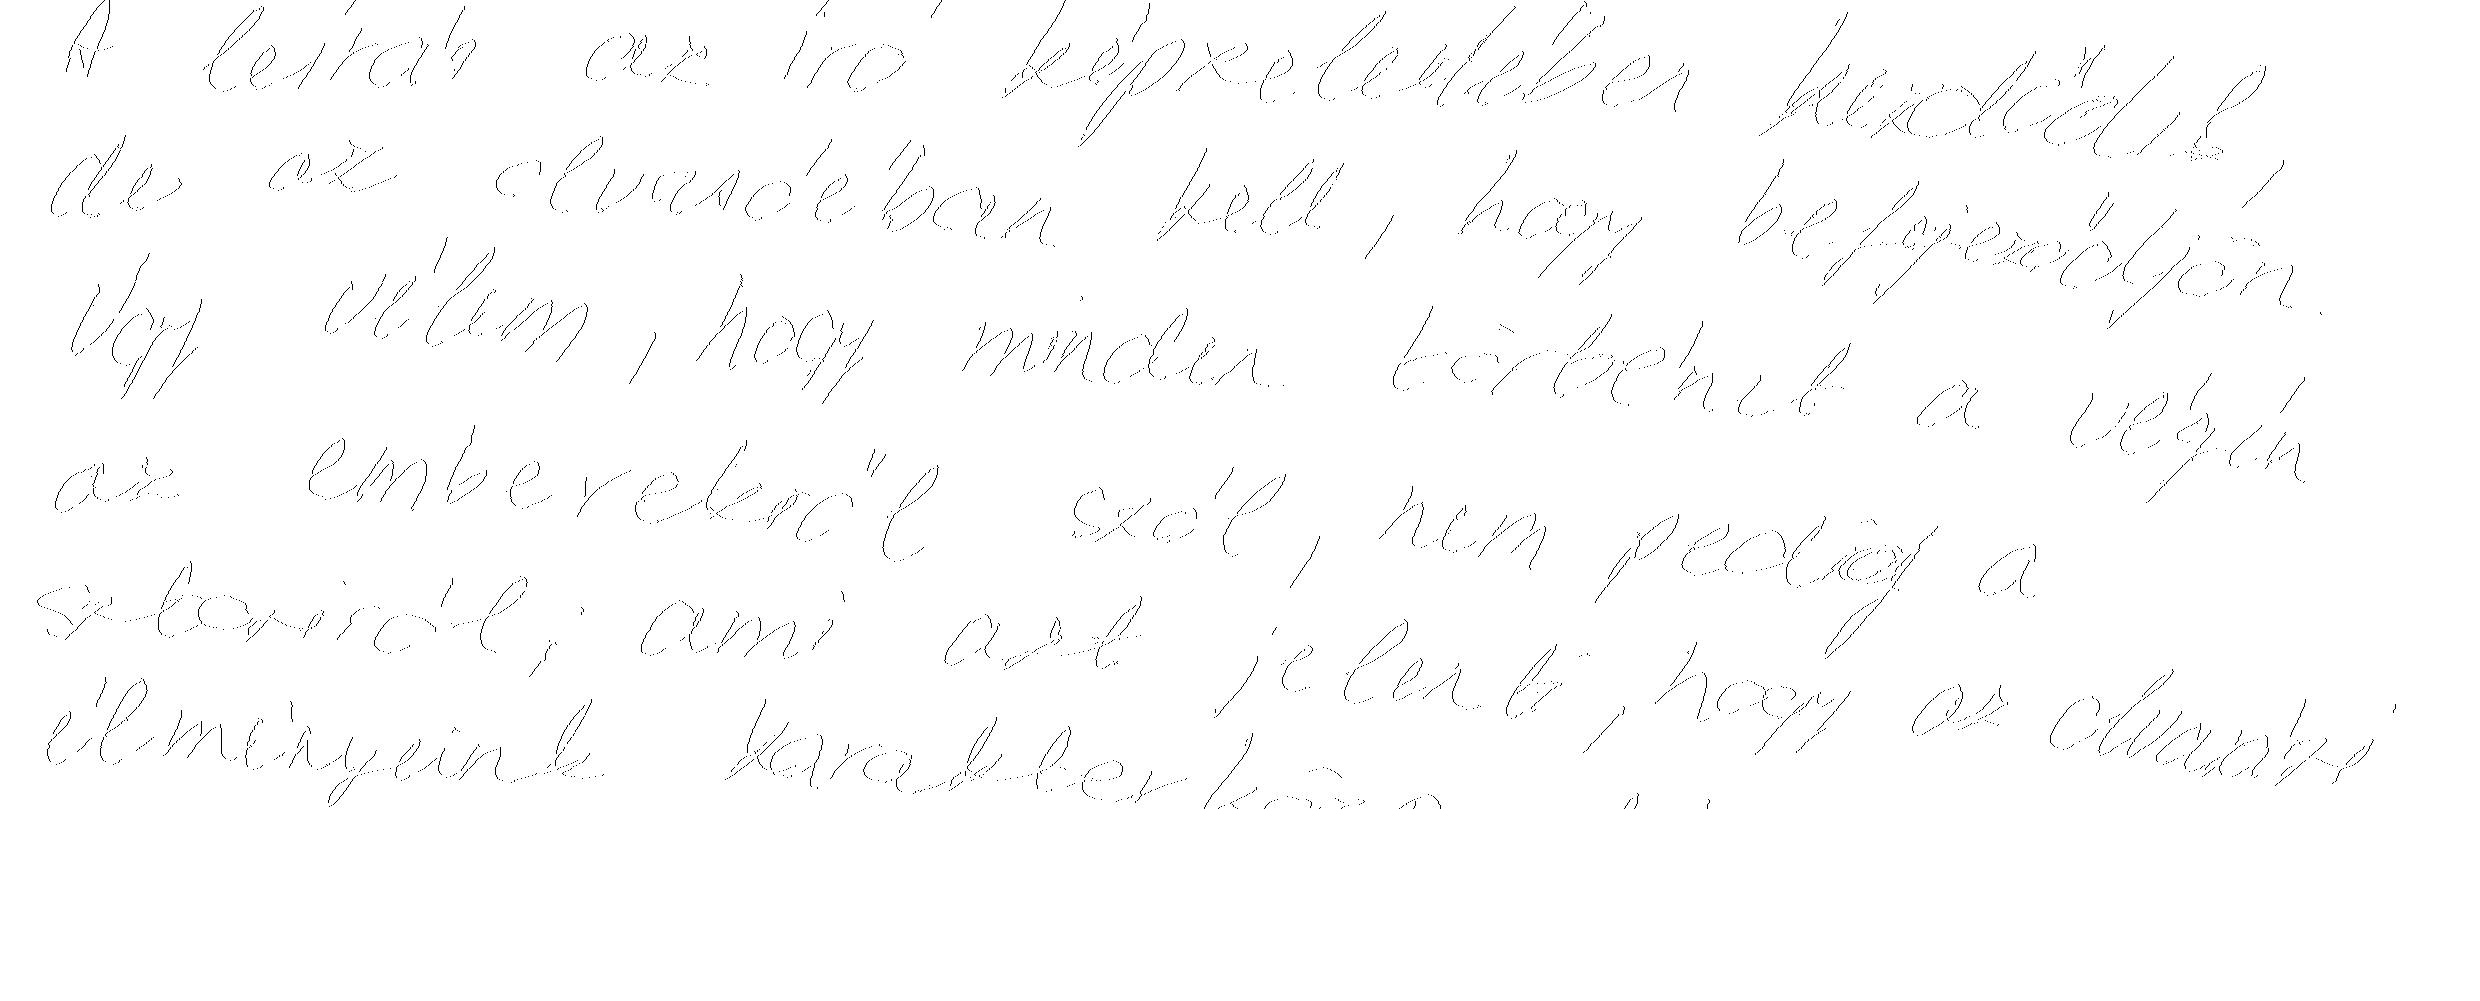 A leírás az író képzeletében kezdődik,
de az olvasóéban kell, hogy befejeződjön.
Úgy vélem, hogy minden történet a végén
az emberekről szól, nem pedig a
sztoriról; ami azt jelenti, hogy az olvasási
élményeink karakter